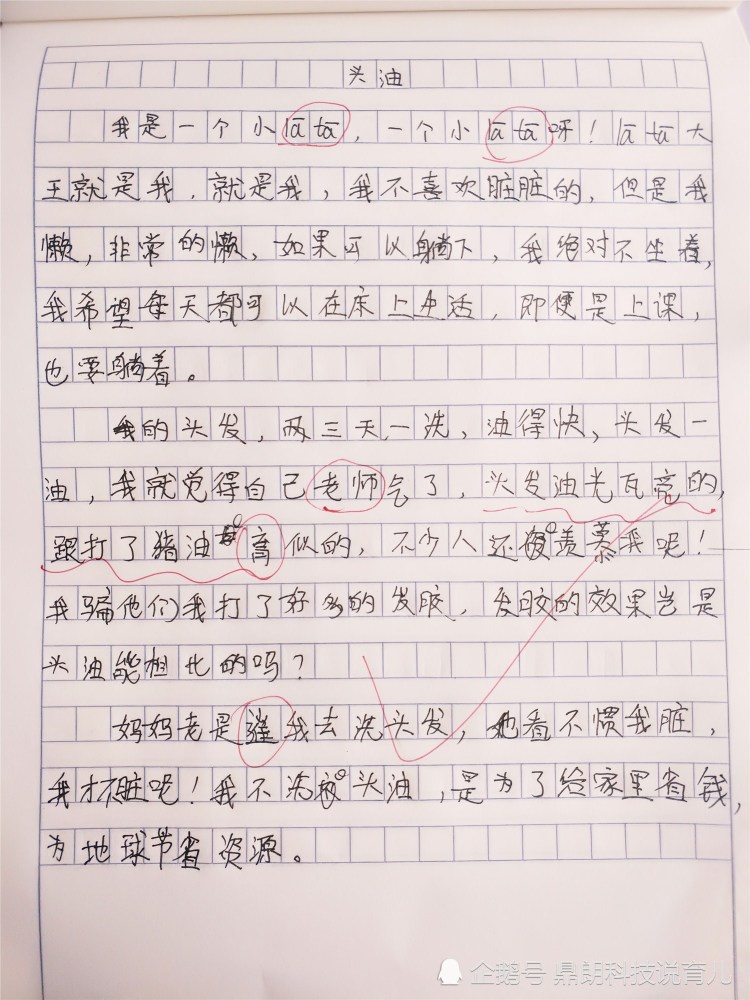 头油
我是一个小lā tā，一个小lā tā呀！lā tā大
王就是我，就是我，我不喜欢脏脏的，但是我
懒，非常的懒，如果可以躺下，我绝对不坐着，
我希望每天都可以在床上生活，即便是上课，
也要躺着。
我的头发，两三天一洗，油得快，头发一
油，我就觉得自己老师气了，头发油光瓦亮的，
跟打了猪油膏似的，不少人还羡慕我呢！
我骗他们我打了好多的发胶，发胶的效果岂是
头油能相比的吗？
妈妈老是我去洗头发，她看不惯我脏，
我才不脏呢！我不洗头油，是为了给家里省钱，
为地球节省资源。
企鹅号 鼎朗科技说育儿